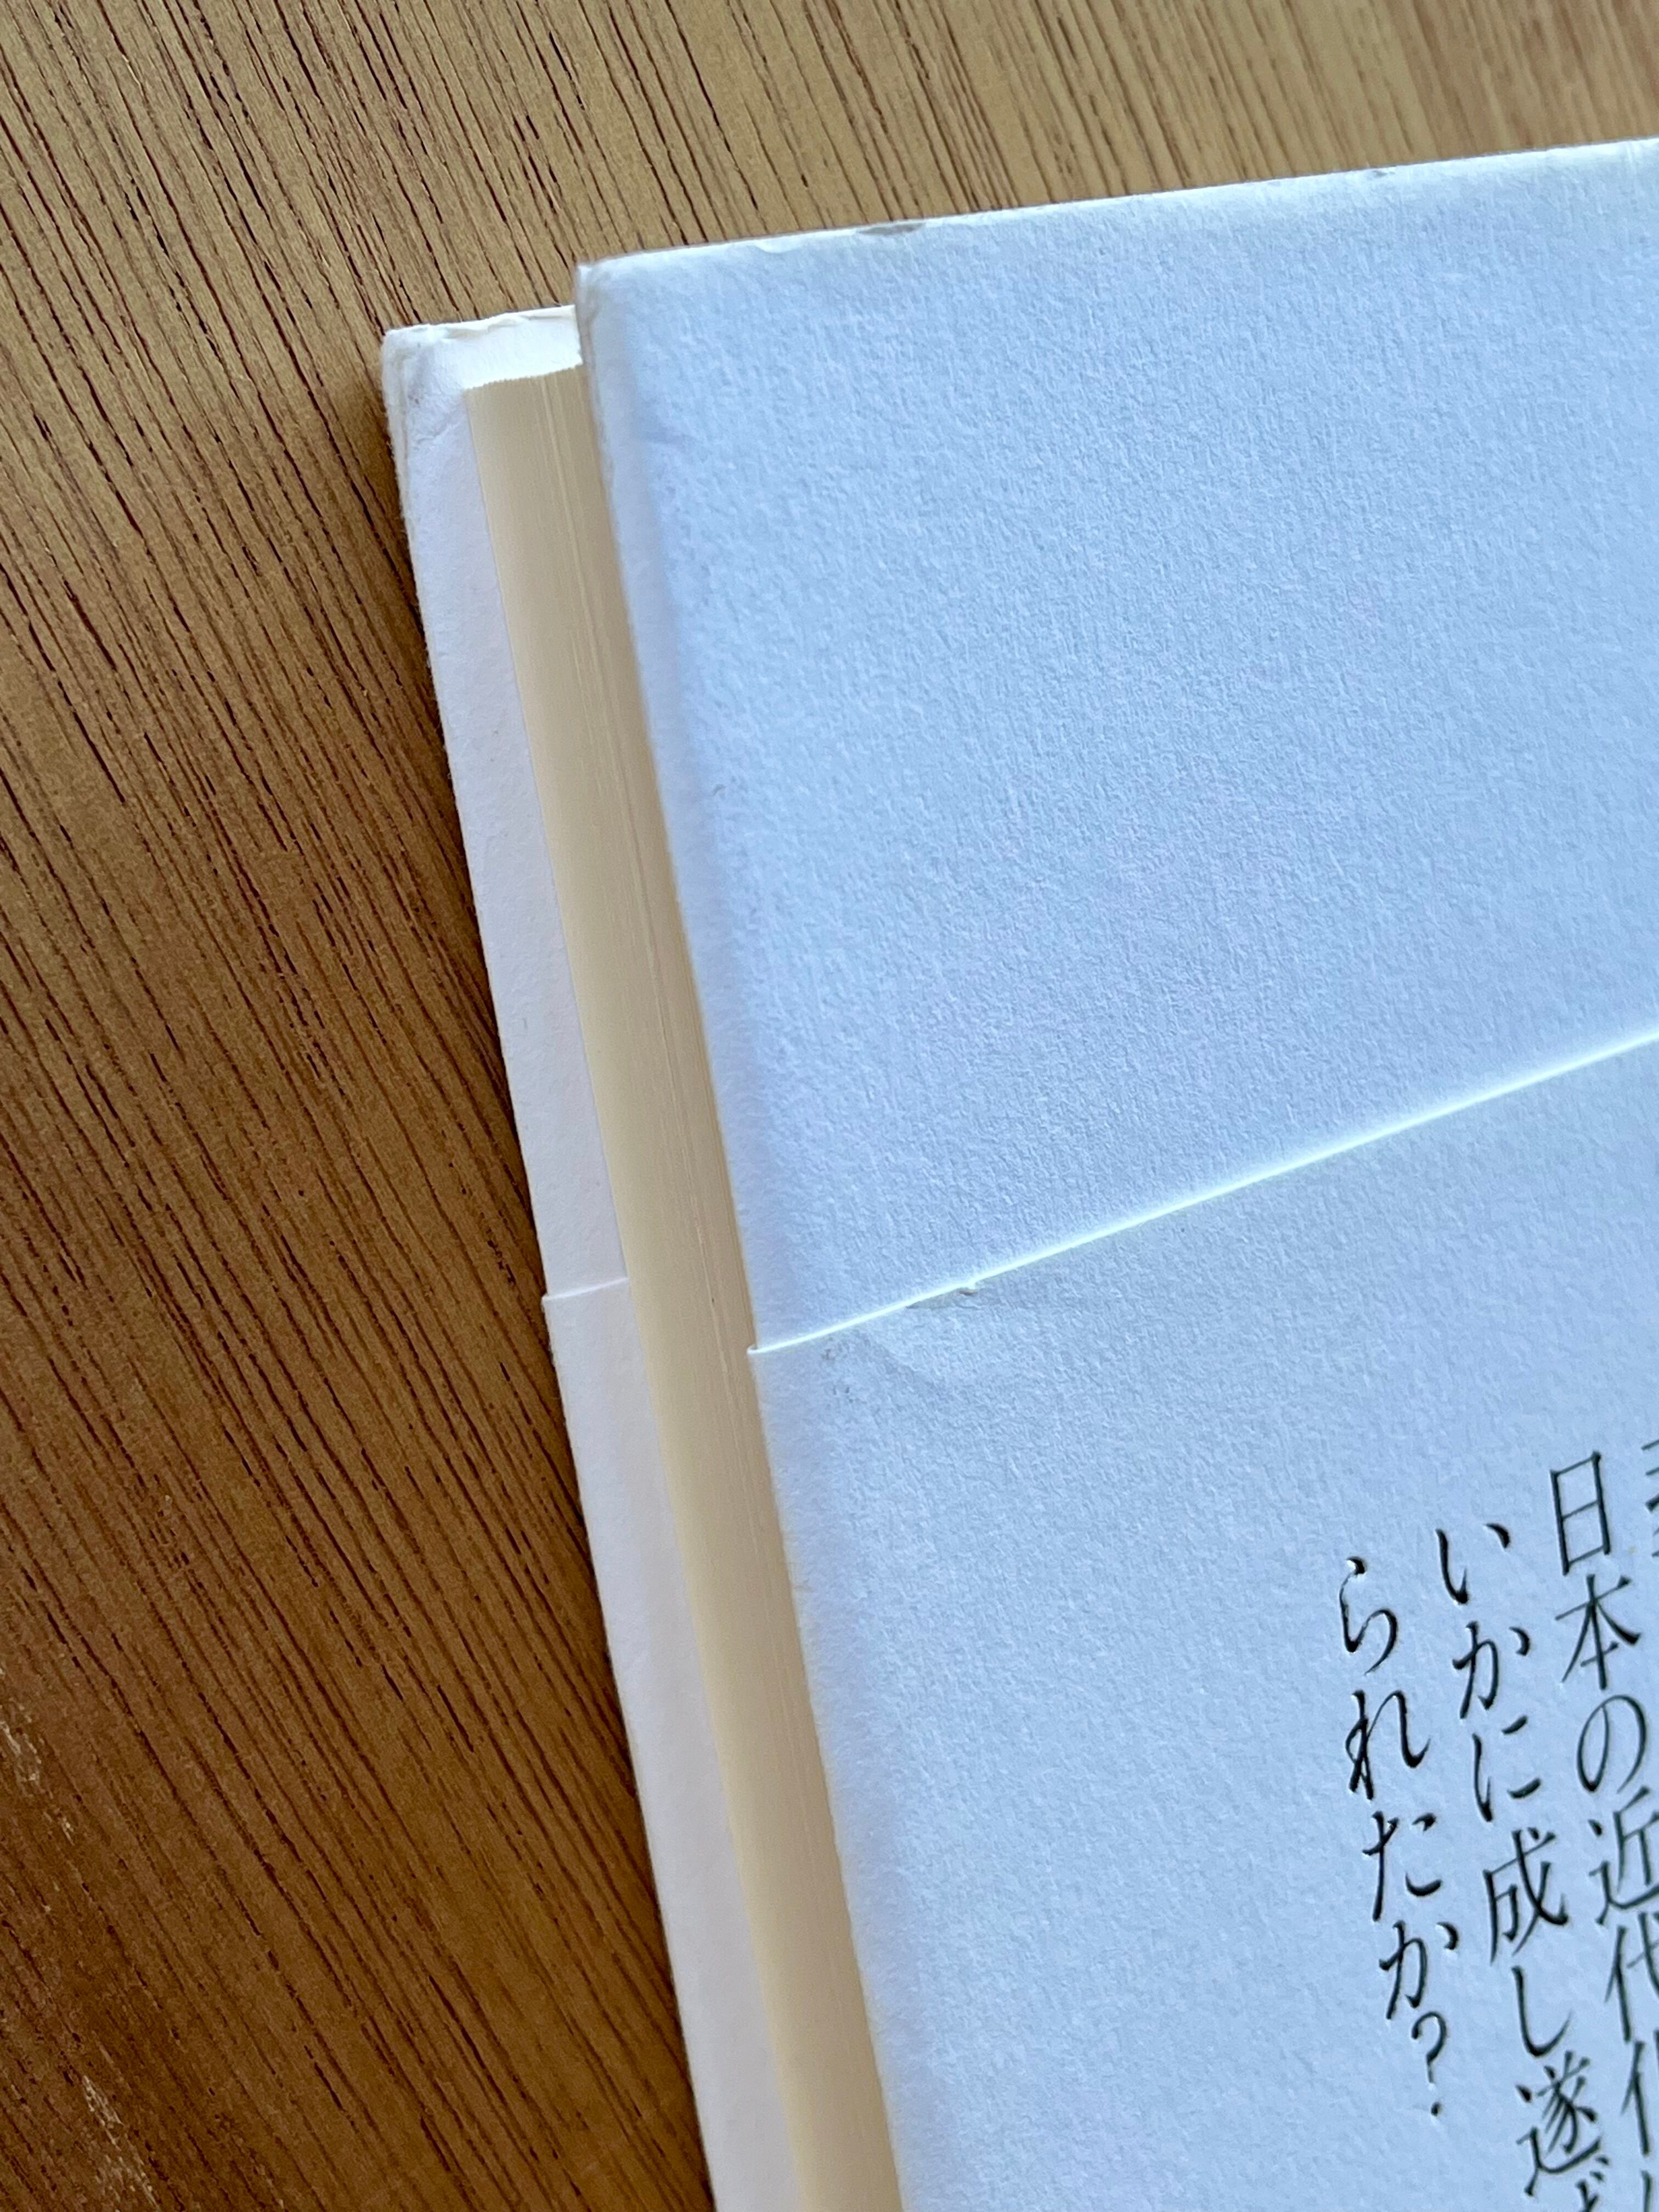 日本の近代化
いかに成し遂げ
られたか?